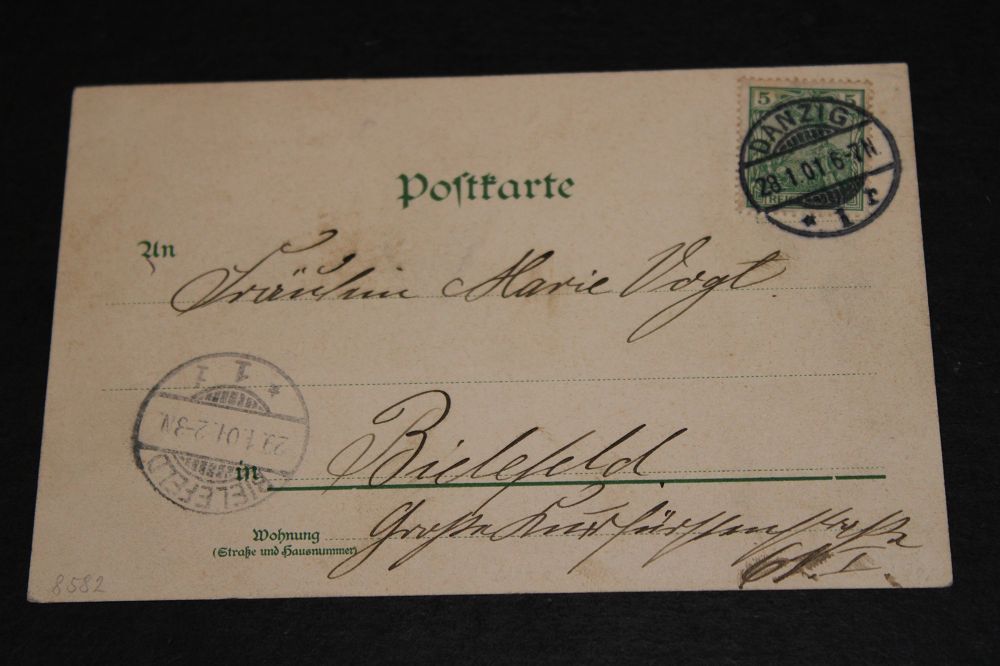 Postkarte
5 5
DANZIG
1.01.6-7N
* 1 r
An
Fräulein Marie Vogt
* 1 1
29.1.01.2-3N.
BIELEFELD
in Bielefeld
Wohnung
(Straße und Hausnummer)
Große Kurfürstenstraße
I.
8582